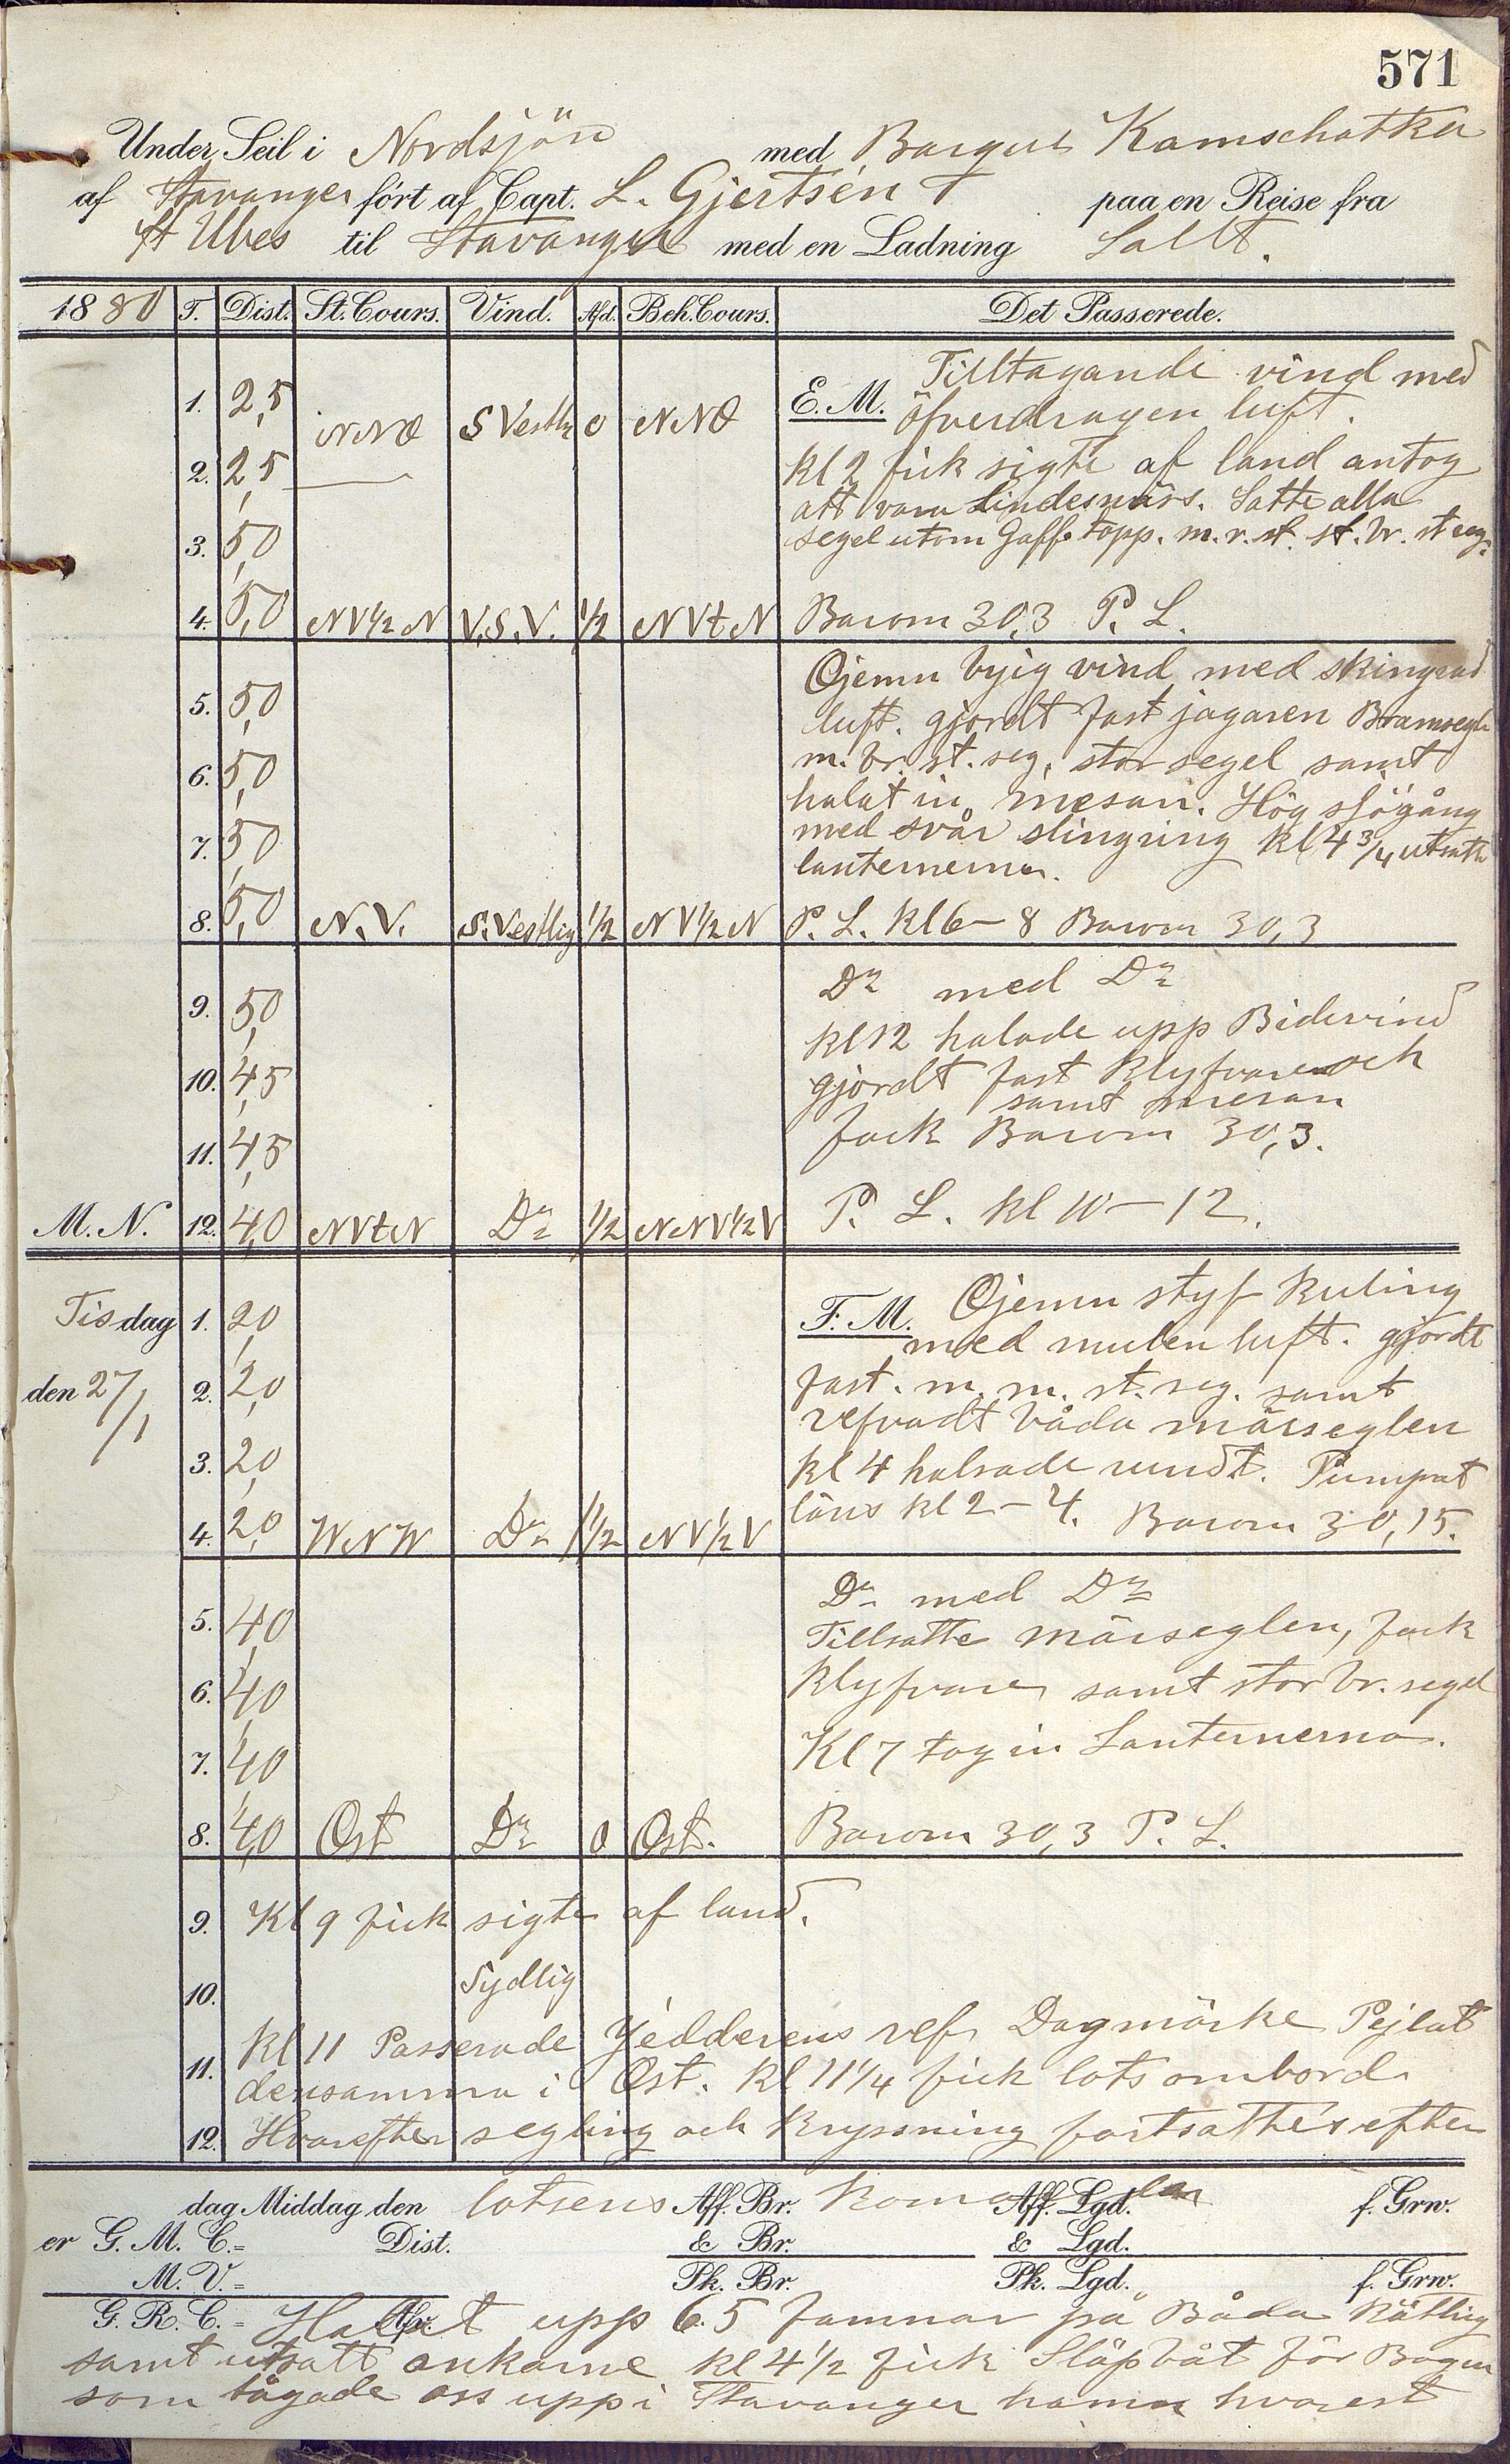 571
Under Seil i Nordsjön med Barque Kamschatka
af Stavanger fört af Capt. L. Gjertsen paa en Reise fra
St Ubes til Stavanger med en Ladning Sallt.
1880 T. Dist. St. Cours. Vind. Afd. Beh. Cours. Det Passerede.
E. M. Tilltagande vind med
1. 2,5 NNO S Vestlig 0 NNO öfverdragen luft.
2. 2,5 kl 2 fick sigte af land antog
att vara Lindesnärs. Satte alla
3. 5,0 segel utom Gaffeltopp. m. r. st. st. br. st seg.
4. 5,0 NV½N V.S.V. ½ NVtN Barom 30,3 P. L.
Ojemn byig vind med skingrad
5. 5,0 luft. gjordt fast jagaren Bramsegle
6. 5,0 m. br. st. seg, stor segel samt
halat in mesan. Hög sjögång
7. 5,0 med svår slingring kl 4¾ utsatte
lanternerna.
8. 5,0 N.V. S.Vestlig ½ NV½N P. L. kl 6-8 Barom 30,3
Do med Do
9. 5,0 kl 12 halade upp Bidevind
10. 4,5 gjordt fast Klyfvaren och
samt mesan
11. 4,5 fock Barom 30,3.
M. N. 12. 4,0 NVtN Do ½ NNV½V P. L. kl 10-12.
F. M. Ojemn styf Kuling
Tisdag 1. 2,0 med mulen luft. gjordt
den 27/1 2. 2,0 fast. m. m. st. seg. samt
refvadt båda märseglen
3. 2,0 kl 4 halsade rundt. Pumpat
läns kl 2-4. Barom 30,15.
4. 2,0 WNW Do 1½ NV½V
Do med Do
5. 4,0 Tillsatte märseglen, fock
6. 4,0 Klyfvaren samt stor br. segel
7. 4,0 Kl 7 tog in Lanternerna.
8. 4,0 Ost Do 0 Ost. Barom 30,3 P. L.
9. Kl 9 fick sigte af land.
10. Sydlig
11. Kl 11 Passerade Jedderens ref Dagmärke Pejlat
densamma i Ost. Kl 11¼ fick lots ombord
12. Hvarefter segling och Kryssning fortsattes efter
dag Middag den lotsens Aff. Br. Aff. Lgd. f. Grw.
er G. M. C.= Dist. & Br. & Lgd.
M. V.= Pk. Br. Pk. Lgd. f. Grw.
G. R. C.= Halat upp 65 famnar på Båda Kätting
samt utsatt ankarne kl 4½ fick Släpbåt för Bogen
som bågade oss upp i Stavanger hamn hvarest